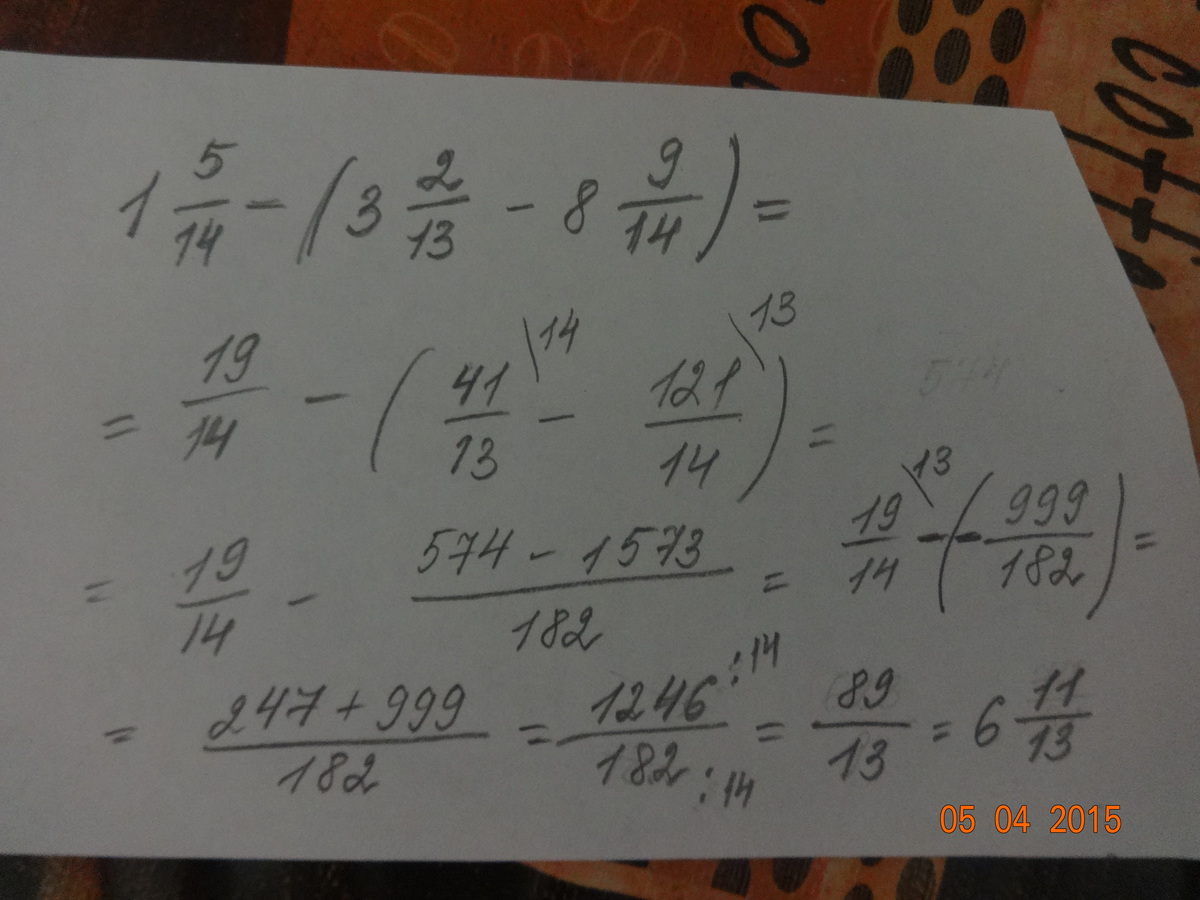 1 5/14 - (3 2/13 - 8 9/14) =
= 19/14 - (41/13 \14 - 121/14 \13) =
= 19/14 - (574 - 1573)/182 = 19/14 \13 - (-999/182) =
= (247 + 999)/182 = 1246:14/182:14 = 89/13 = 6 11/13
574
05 04 2015